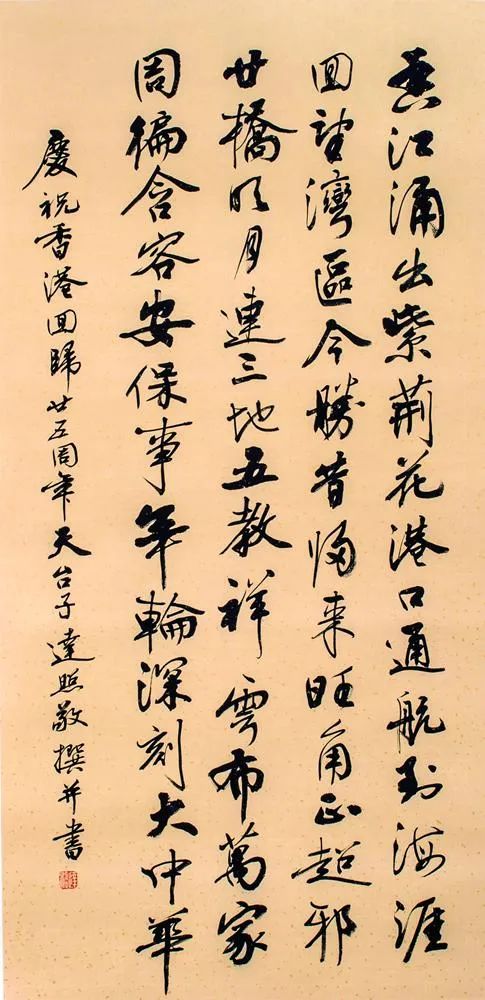 香江涌出紫荆花港口通航到海涯
回望灣區今勝昔歸来旺角正超邪
廿橋明月連三地五教祥雲布萬家
周徧含容安保事年輪深刻大中華
慶祝香港回歸廿五周年天台子達照敬撰并書